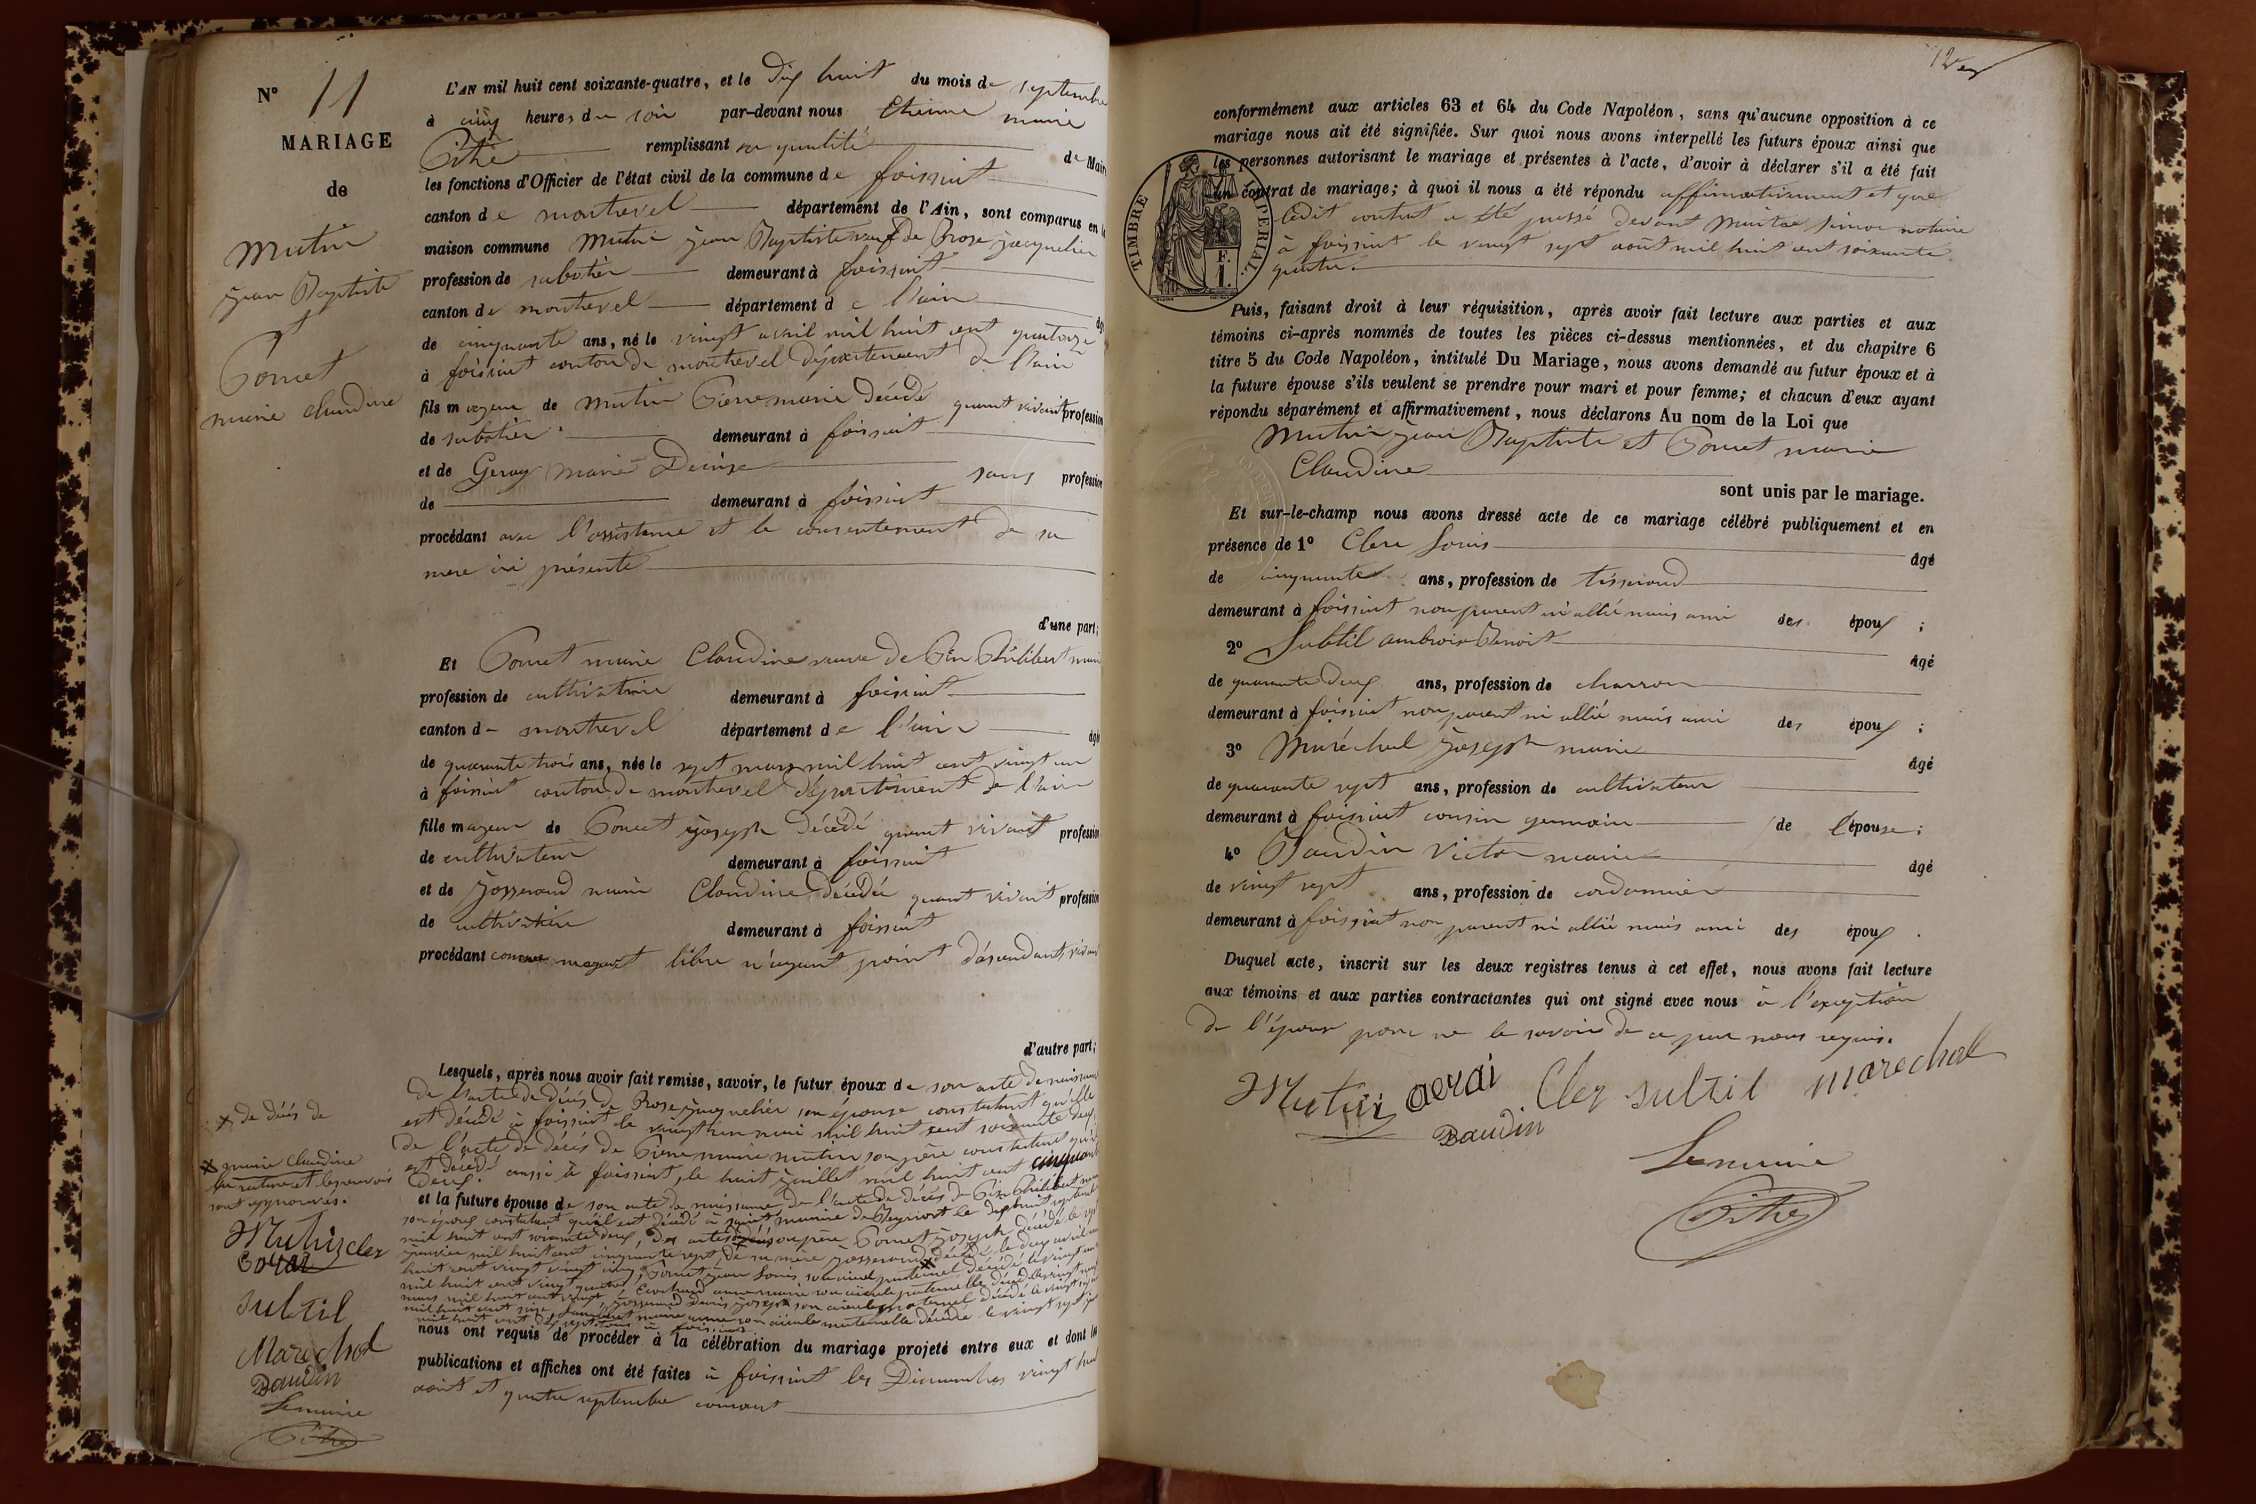 N° 11
MARIAGE
de
Mutin
jean Baptiste
et
Poncet
marie claudine
L'AN mil huit cent soixante-quatre, et le dix huit du mois de septembre
à cinq heures du soir par-devant nous Etienne marie
Pithe remplissant sa qualité de Maire
les fonctions d'Officier de l'état civil de la commune de foissiat
canton de montrevel département de l'Ain, sont comparus en la
maison commune Mutin jean Baptiste veuf de Rose jacquelier
profession de sabotier demeurant à foissiat
canton de montrevel département de l'ain âgé
de cinquante ans, né le vingt avril mil huit cent quatorze
à foissiat canton de montrevel département de l'ain
fils mageur de Mutin Pierre marie décédé quant vivait profession
de sabotier demeurant à foissiat
et de Geray marie Denise sans profession
de demeurant à foissiat
procédant avec l'assistance et le consentement de sa
mere ici présente
d'une part;
Et Poncet marie Claudine veuve de Pin Philibert marie
profession de cultivatrice demeurant à foissiat
canton de montrevel département de l'ain âgée
de quarante trois ans, née le sept mars mil huit cent vingt un
à foissiat canton de montrevel département de l'ain
fille mageur de Poncet joseph décédé quant vivait profession
de cultivateur demeurant à foissiat
et de josserand marie Claudine décédée quant vivait profession
de cultivatrice demeurant à foissiat
procédant comme libre n'ayant point d'ascendants vivant
d'autre part;
Lesquels, après nous avoir fait remise, savoir, le futur époux de son acte de naissance
de l'acte de décès de Rose jacquelier son épouse constatant qu'elle
est décédé à foissiat le vingt un mai mil huit cent soixante deux
de l'acte de décès de Pierre marie mutin son père constatant qu'il
est décédé aussi à foissiat, le huit juillet mil huit cent cinquante
deux.
et la future épouse de son acte de naissance, de l'acte de décès de Pin Philibert marie
son époux constatant qu'il est décédé à le dix huit septembre
mil huit cent soixante deux, des actes son père Poncet joseph décédé le sept
janvier mil huit cent cinquante sept, de sa mère josserand décédée le deux avril mil
huit cent vingt cinq, Poncet jean Louis son aieul paternel décédé le vingt un
mars mil huit cent vingt anne marie son aieule paternelle décédée
mil huit cent josserand Denis joseph son aieul maternel décédé le vingt
mil huit cent marie anne son aieule maternelle décédée le vingt sept
nous ont requis de procéder à la célébration du mariage projeté entre eux et dont les
publications et affiches ont été faites à foissiat les Dimanches vingt huit
août et quatre septembre courant
x de décès de
x marie claudine
la rature et les renvois
sont approuvés.
Mutin cler
subtil
Marechal
Baudin
Le maire
Pithe
conformément aux articles 63 et 64 du Code Napoléon, sans qu'aucune opposition à ce
mariage nous ait été signifiée. Sur quoi nous avons interpellé les futurs époux ainsi que
les personnes autorisant le mariage et présentes à l'acte, d'avoir à déclarer s'il a été fait
un contrat de mariage; à quoi il nous a été répondu affirmativement et que
ledit contrat a été passé devant maitre notaire
à foissiat le vingt sept août mil huit cent soixante
quatre.
TIMBRE IMPERIAL.
1 F.
Puis, faisant droit à leur réquisition, après avoir fait lecture aux parties et aux
témoins ci-après nommés de toutes les pièces ci-dessus mentionnées, et du chapitre 6
titre 5 du Code Napoléon, intitulé Du Mariage, nous avons demandé au futur époux et à
la future épouse s'ils veulent se prendre pour mari et pour femme; et chacun d'eux ayant
répondu séparément et affirmativement, nous déclarons Au nom de la Loi que
Mutin jean Baptiste et Poncet marie
Claudine
sont unis par le mariage.
Et sur-le-champ nous avons dressé acte de ce mariage célébré publiquement et en
présence de 1° Clerc Louis âgé
de cinquante ans, profession de tisserand
demeurant à foissiat non parent ni allié mais ami des époux ;
2° Subtil ambroise Benoit âgé
de quarante deux ans, profession de charron
demeurant à foissiat non parent ni allié mais ami des époux ;
3° Maréchal joseph marie âgé
de quarante sept ans, profession de cultivateur
demeurant à foissiat cousin germain de l'épouse ;
4° Baudin Victor marie âgé
de vingt sept ans, profession de cordonnier
demeurant à foissiat non parent ni allié mais ami des époux .
Duquel acte, inscrit sur les deux registres tenus à cet effet, nous avons fait lecture
aux témoins et aux parties contractantes qui ont signé avec nous à l'exeption
de l'épouse pour ne le savoir de ce par nous requis.
Mutin Cler subtil marechal
Baudin
Le maire
Pithe